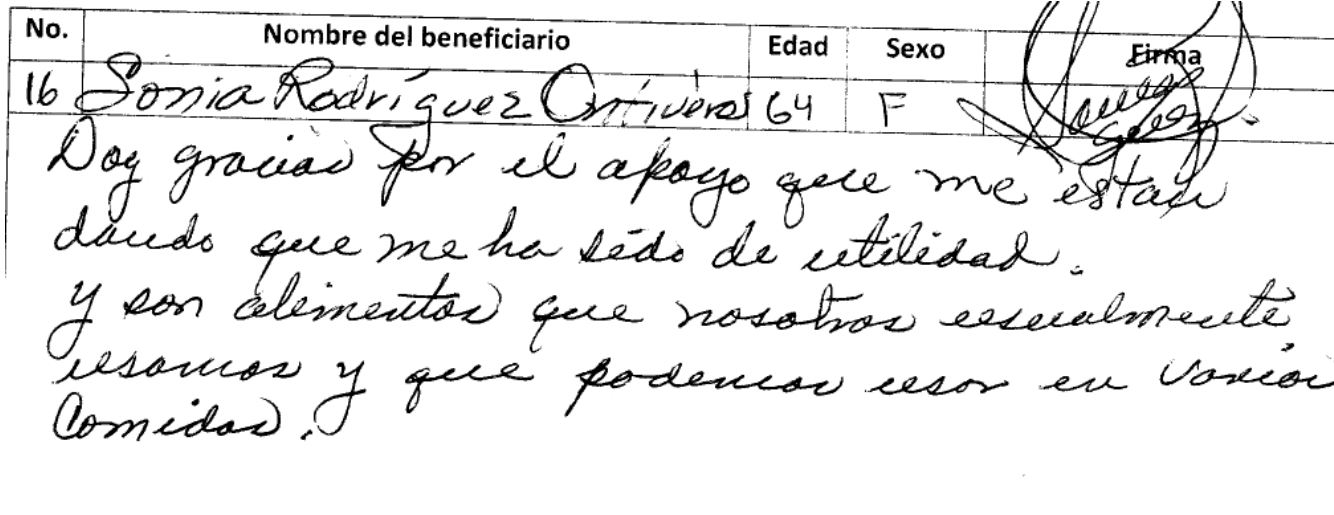 No. Nombre del beneficiario Edad Sexo Firma
16 Sonia Rodríguez Ontiveros 64 F
Doy gracias por el apoyo que me estan
dando que me ha sido de utilidad.
y son alimentos que nosotros usualmente
usamos y que podemos usar en varias
Comidas.